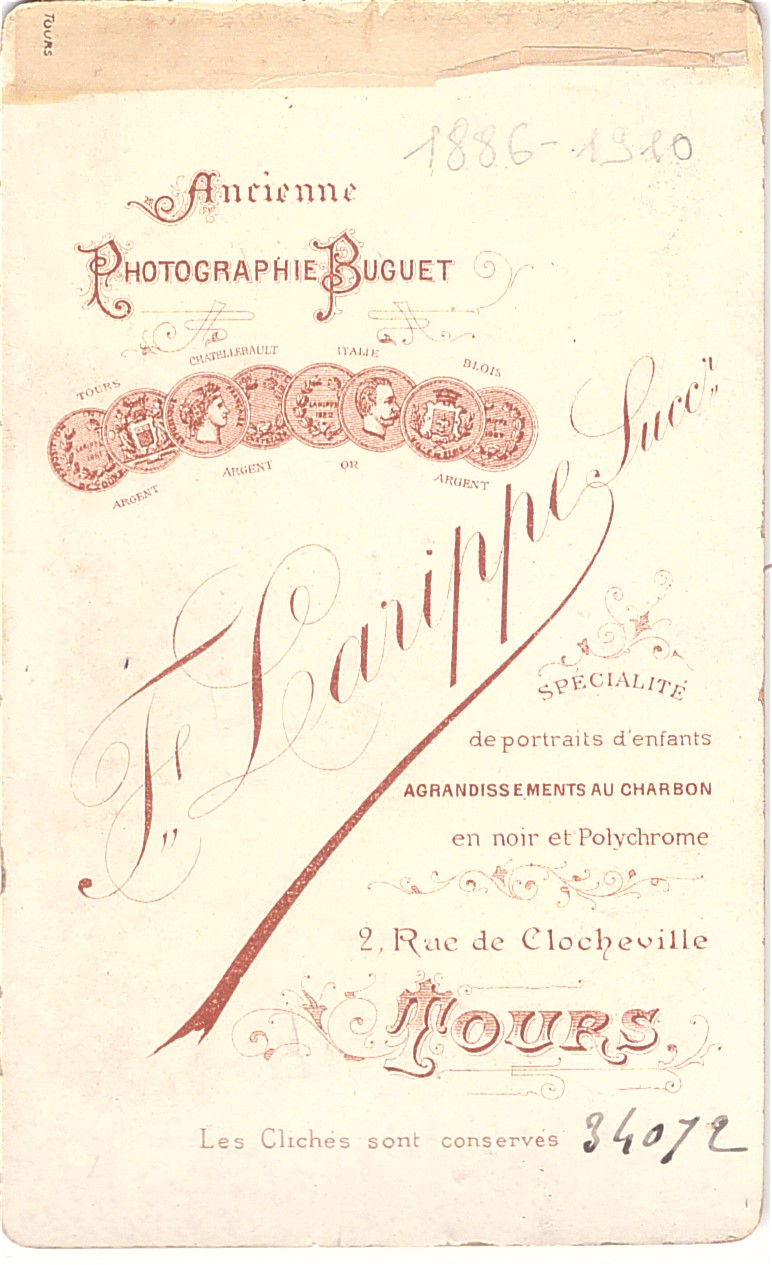 TOURS
1886-1910
Ancienne
PHOTOGRAPHIE BUGUET
TOURS CHATELLERAULT ITALIE BLOIS
ARGENT ARGENT OR ARGENT
Fd Larippe Succr
SPÉCIALITÉ
de portraits d'enfants
AGRANDISSEMENTS AU CHARBON
en noir et Polychrome
2, Rue de Clocheville
TOURS
Les Clichés sont conservés 34072